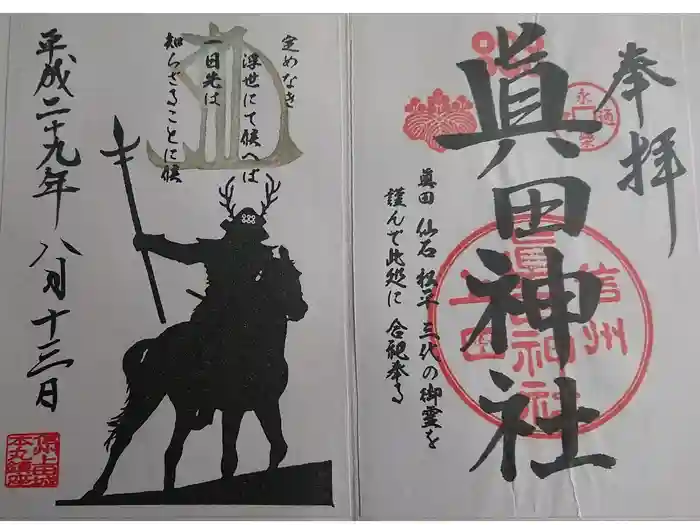 奉拝
眞田神社
眞田 仙石 松平 三代の御霊を
謹んで此処に 合祀奉る
信州
上田
眞田神社
定めなき
浮世にて候へば
一日先は
知らざることに候
平成二十九年 八月十三日
上田城
本丸鎮座